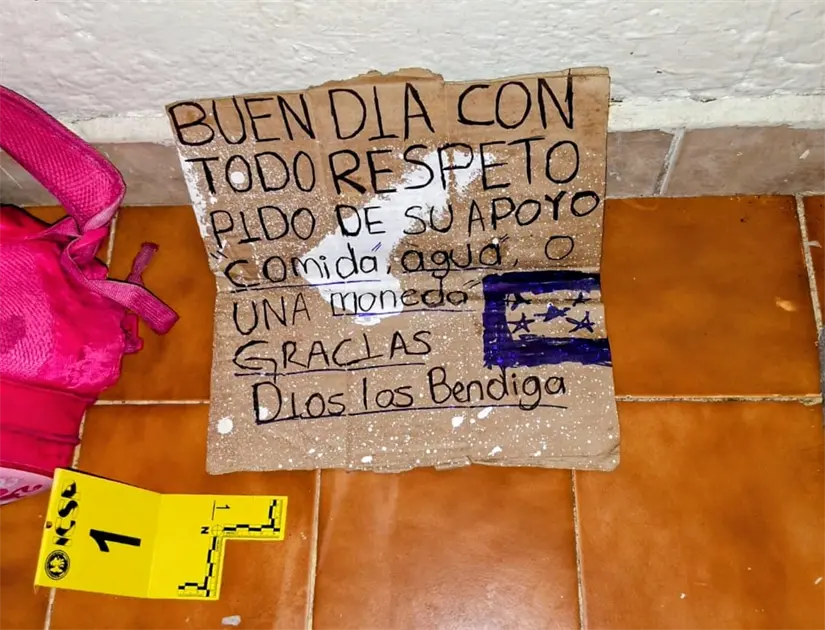 BUEN DIA CON
TODO RESPETO
PIDO DE SU APOYO
"comida", agua", O
UNA moneda"
GRACIAS
Dios los Bendiga
ICSP
1
1
N